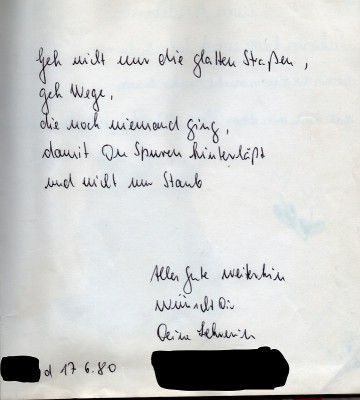 Geh nicht nur die glatten Straßen,
geh Wege,
die noch niemand ging,
damit Du Spuren hinterläßt
und nicht nur Staub
Alles Gute weiterhin
wünscht Dir
Deine Lehrerin
d 17 6.80